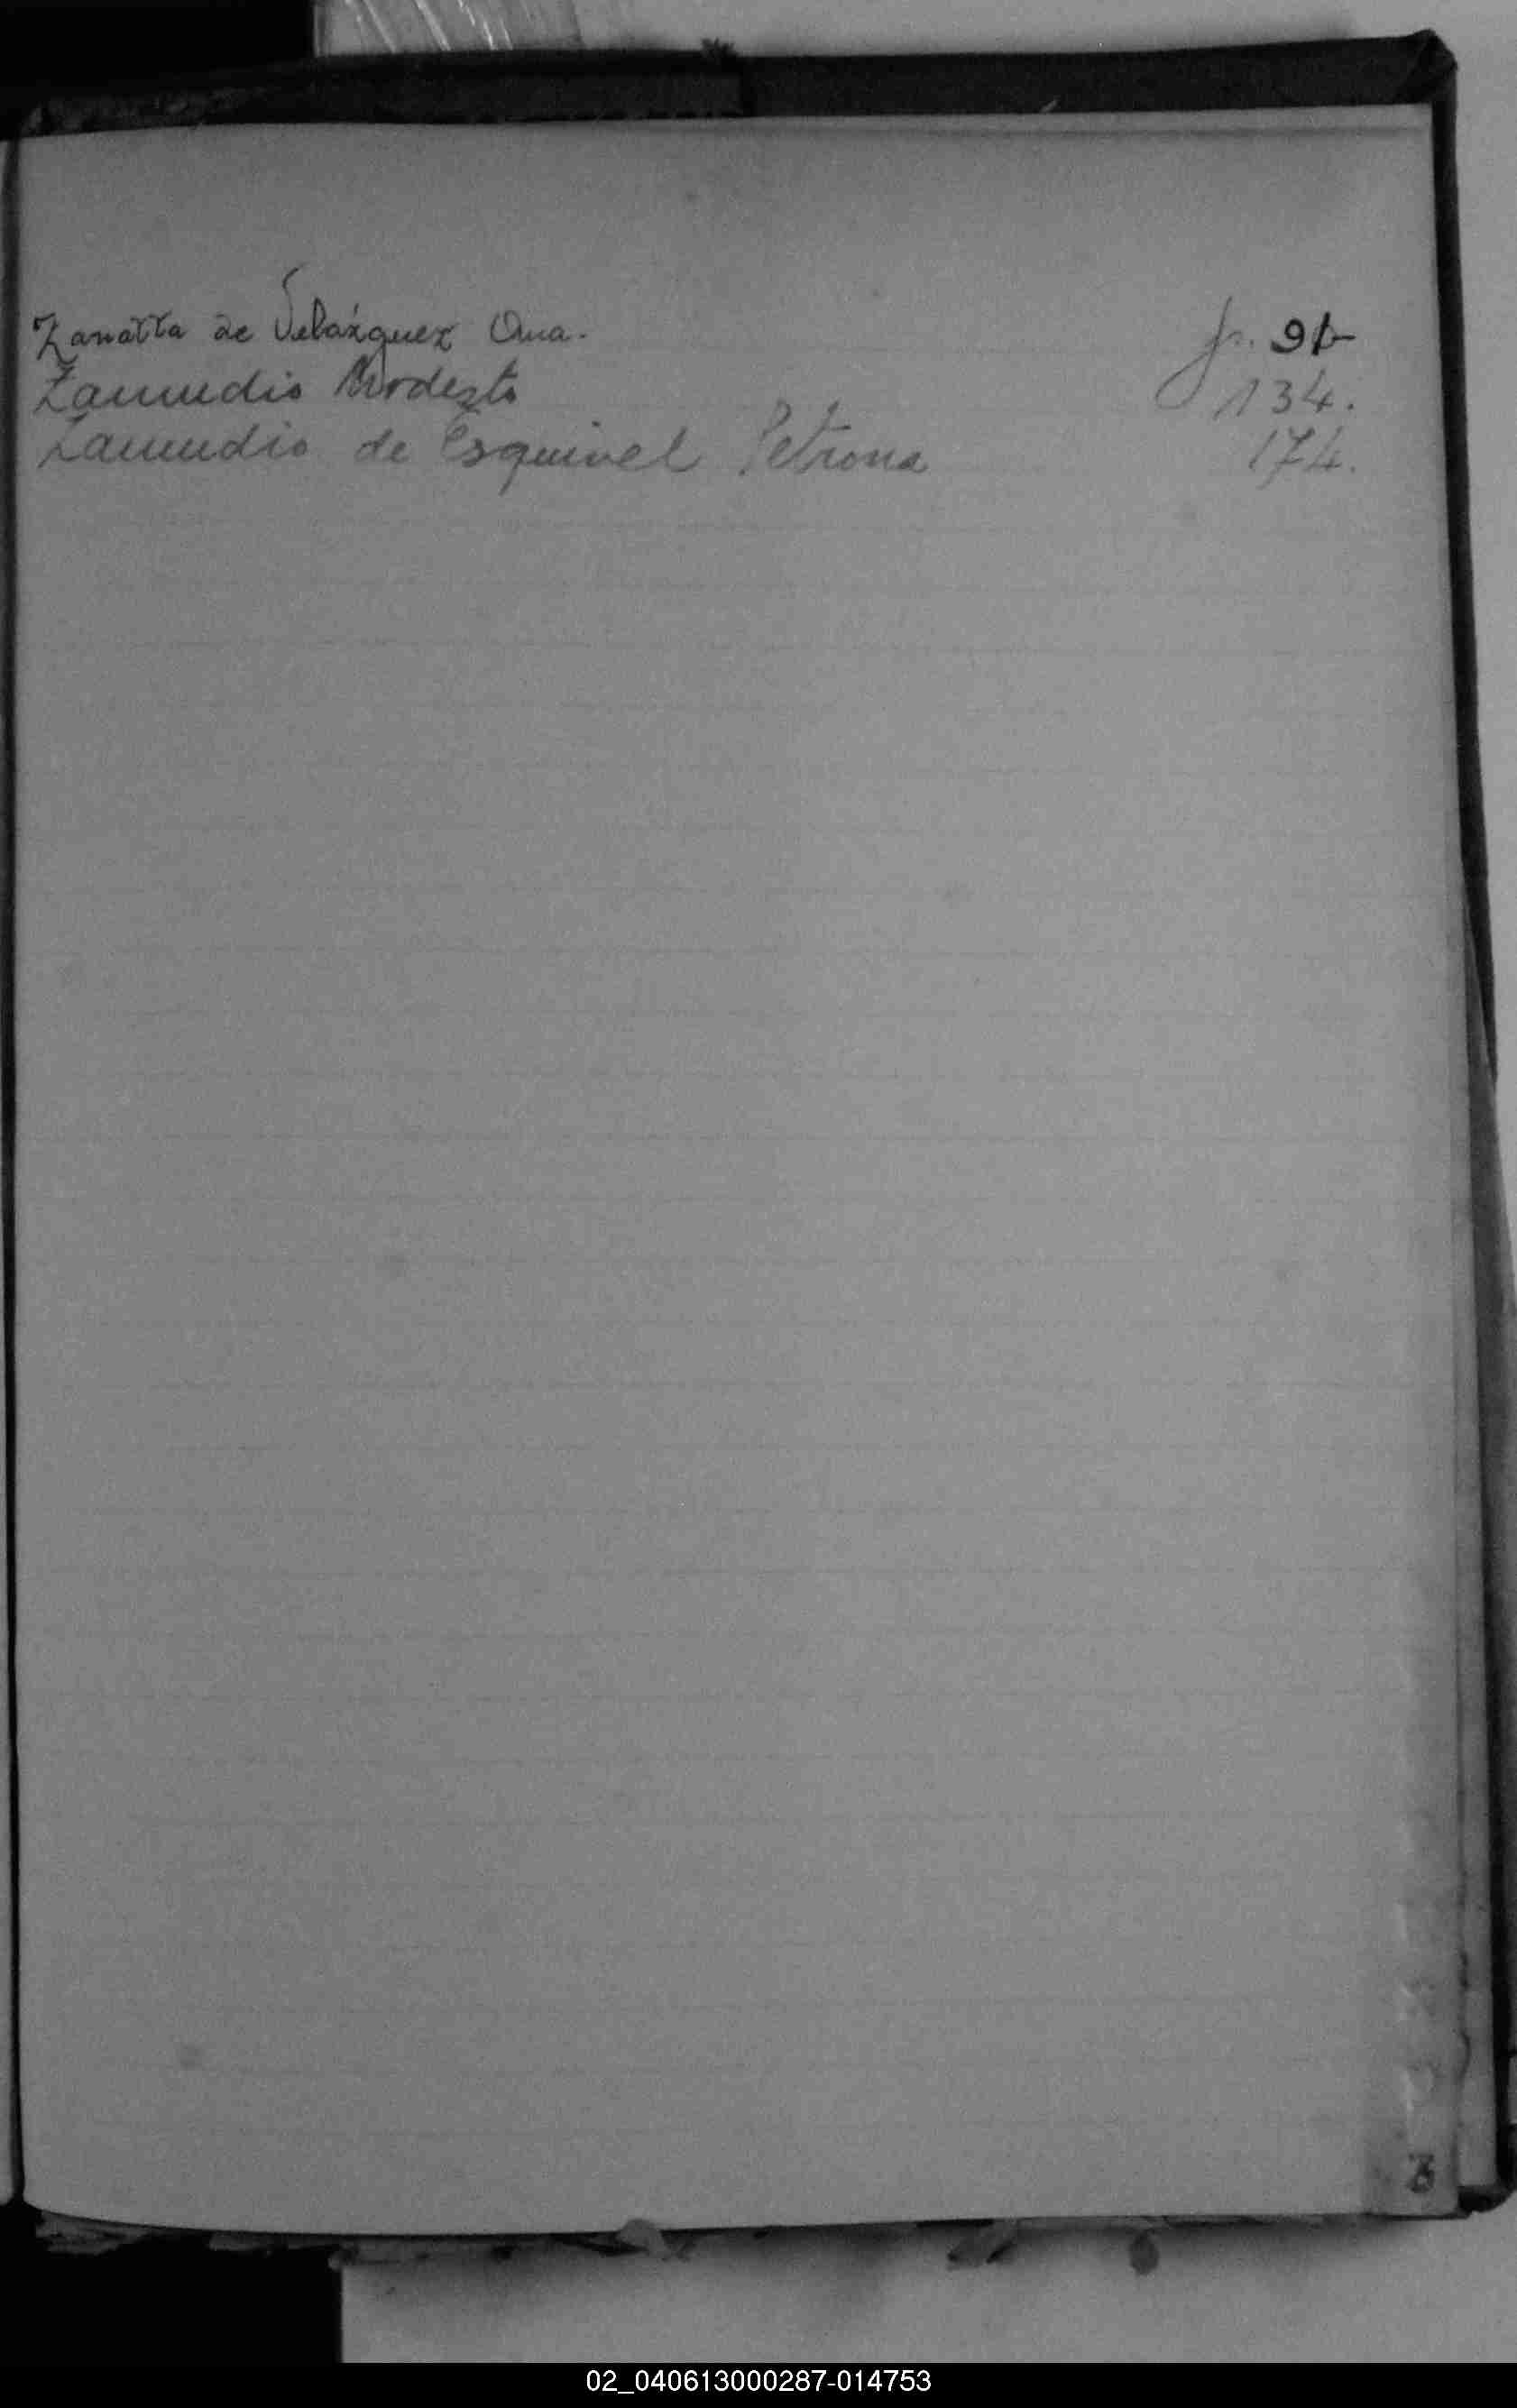 Zanatta de Velázquez Ana. p. 91
Zamudio Modesto 134.
Zamudio de Esquivel Petrona 174.
Z
02_040613000287-014753